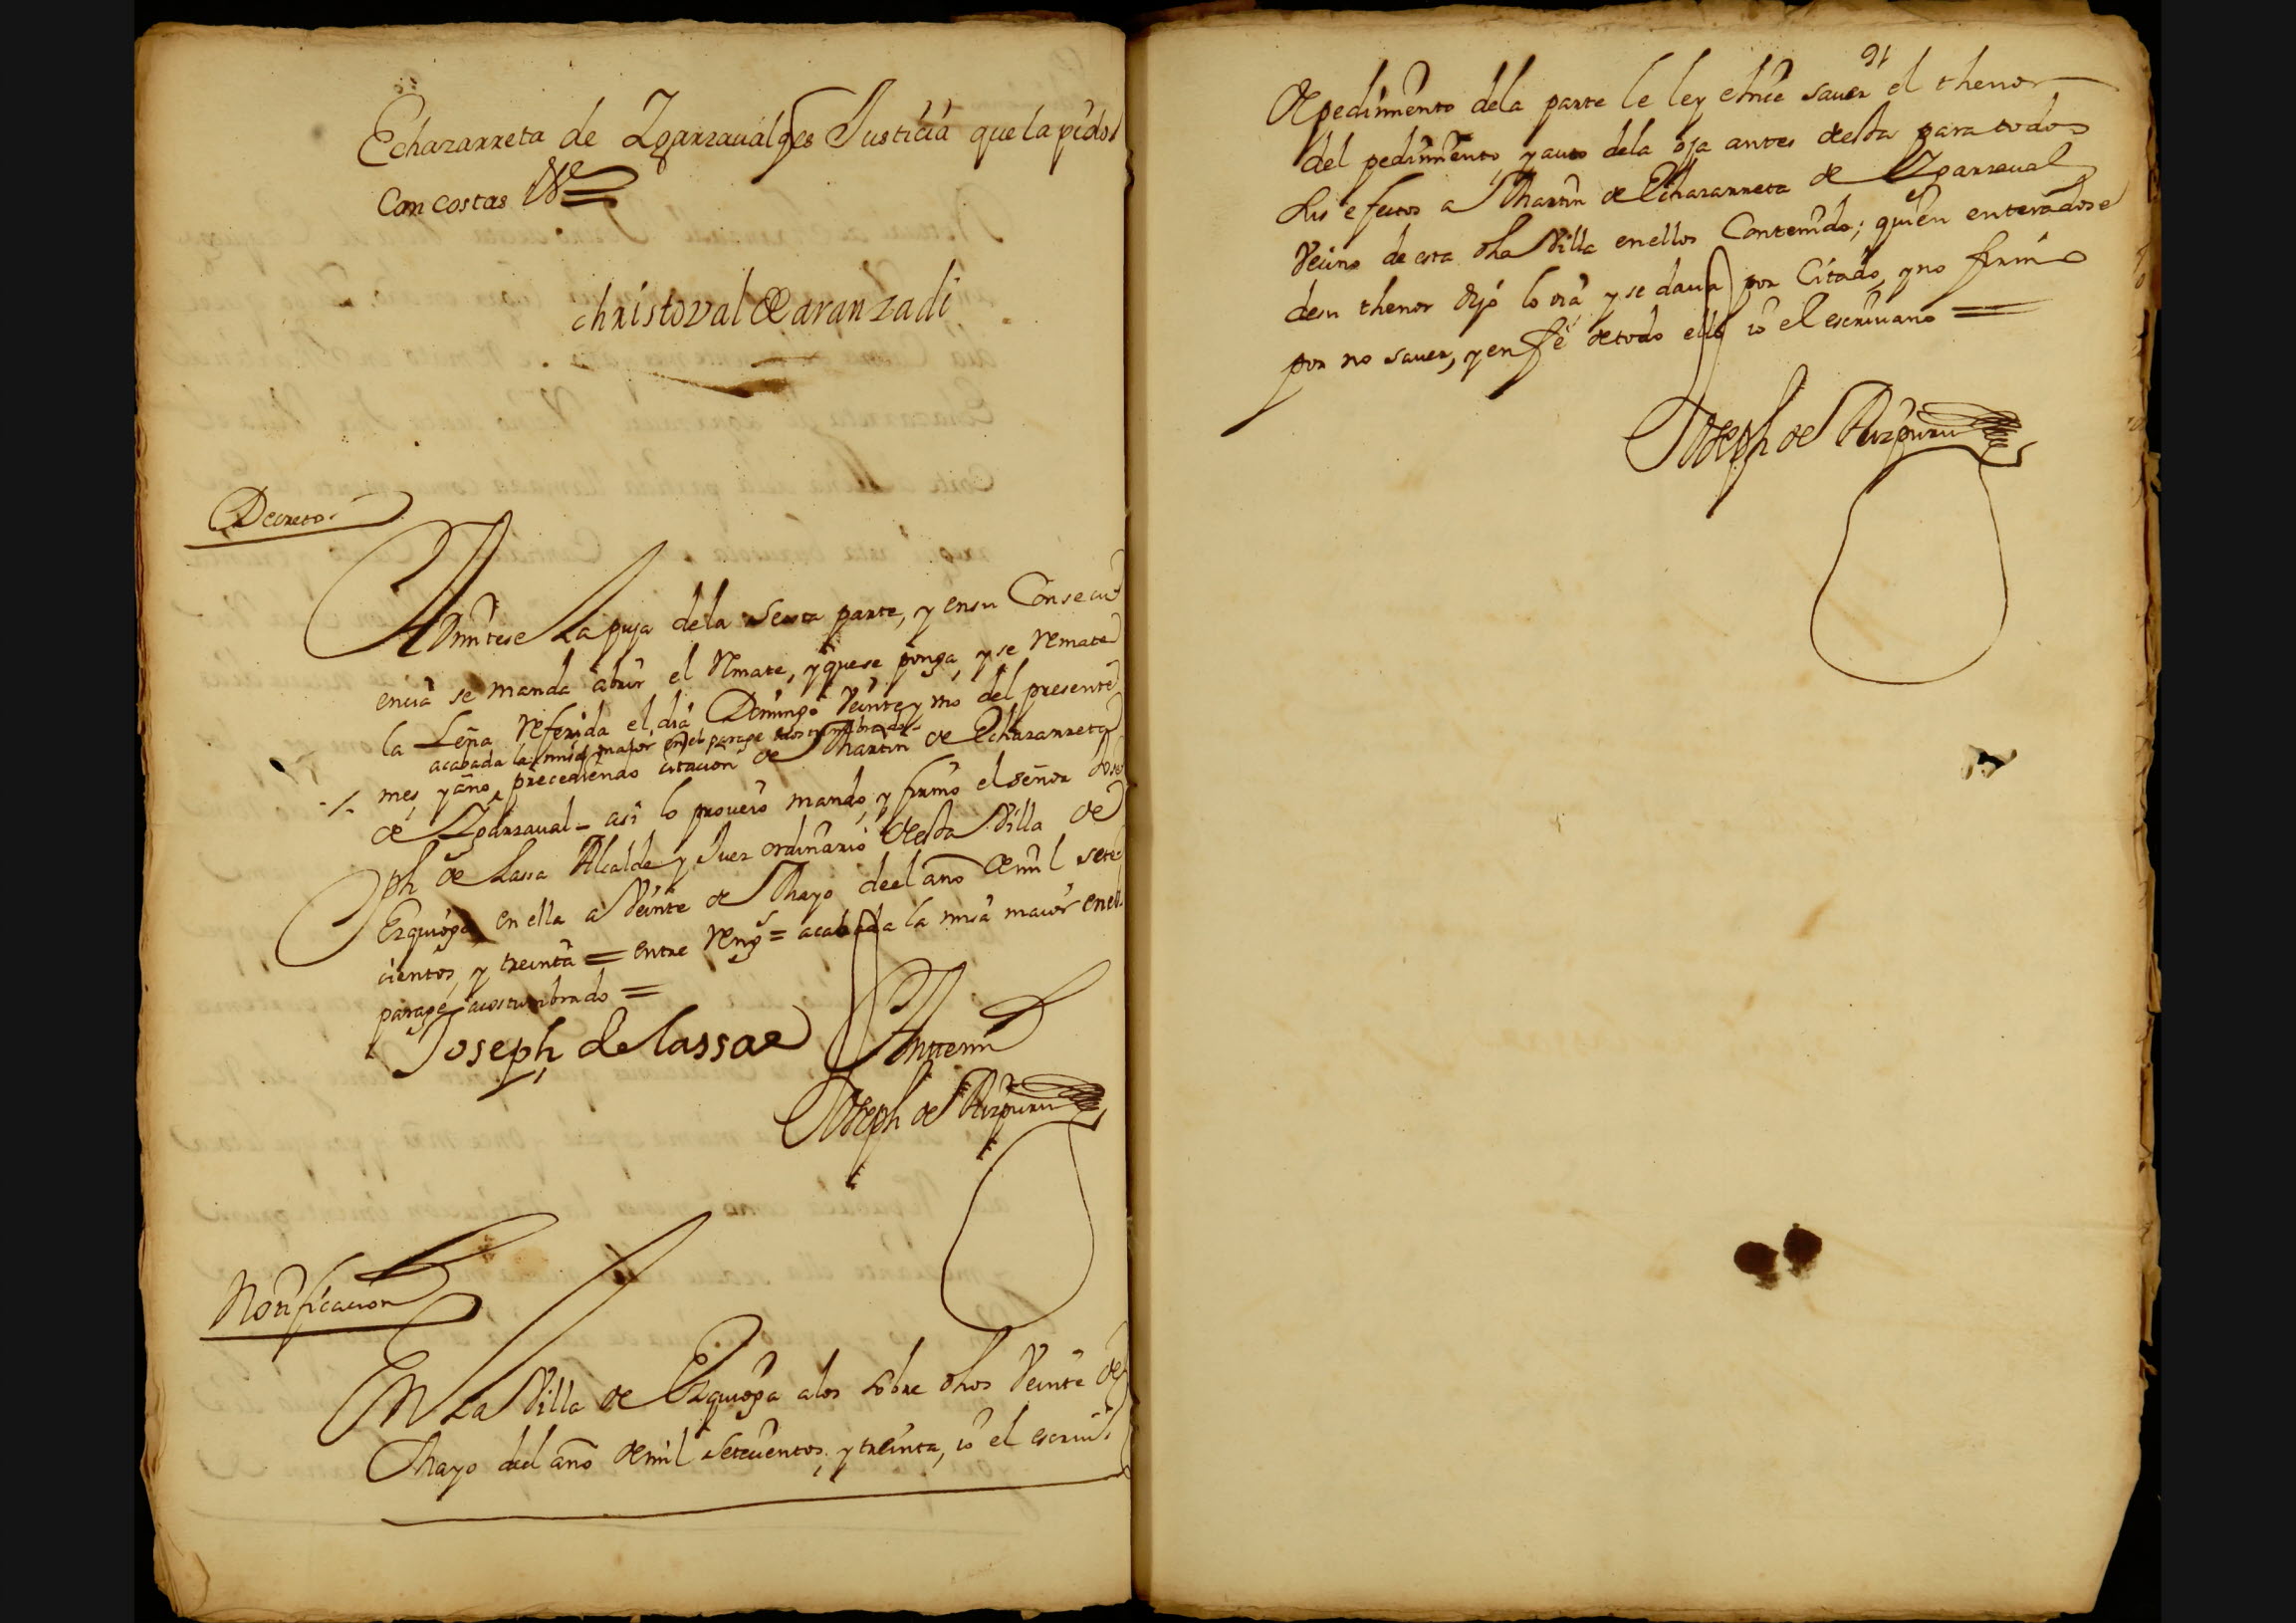 Echazarreta de Zgarzaual ques Justicia que la pido
Con costas
christoval de aranzadi
Decreto
Admitese La puja dela sesta parte, y ensu Consecu
encia se manda abrir el Remate, y quese ponga, y se Remate
la Leña Referida el dia Domingo Veinte y uno del presente
acabada la misa maior en el parage acostumbrado
mes, y año, precediendo citacion de Martin de Echazarreta
de Zgarzaual - asi lo proueio mando, y firmo el señor Jose
ph de Lassa Alcalde y Juez ordinario desta Villa de
Ezquioga en ella a Veinte de Mayo deel año de mil sete
cientos, y treinta = entre Reng.s = acabada la misa maior enel
parage acostumbrado =
Joseph de lassa
Antemi
Joseph de Aizpuru
Notificacion
En La Villa de Ezquioga a los sobre dhos Veinte de
Mayo del año de mil setecientos, y treinta, io el escriu.o
91
de pedimento dela parte le ley e hice sauer el thenor
del pedimento, y auto dela oja antes desta para todos
sus efectos a Martin de Echazarreta de Zgarzaual
Vecino de esta dha Villa enellos Contenido; quien enteradose
desu thenor dijo lo oia y se daua por Citado, y no firmo
por no sauer, y en fe de todo ello io el escriuano =
Joseph de Aizpuru